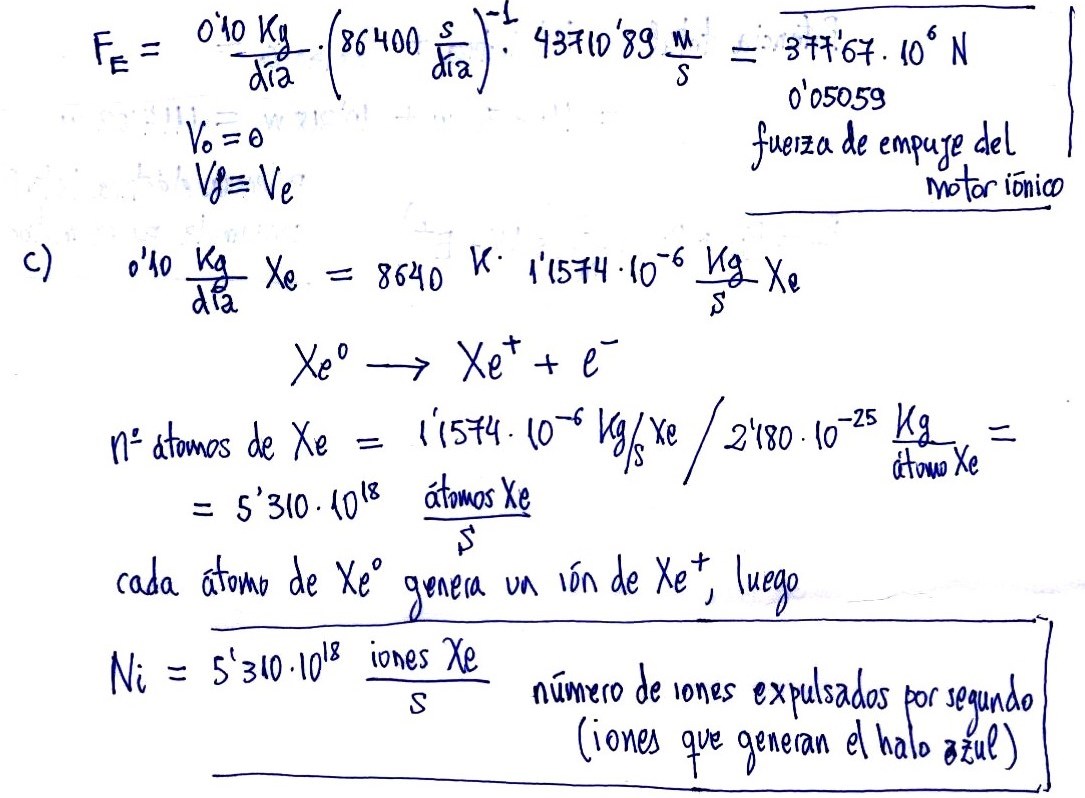 F_E = 0'10 Kg/día · (86400 s/día)^-1 · 43710'89 m/s = 377'67·10^6 N
0'05059
V₀ = 0
Vf ≡ Ve
fuerza de empuje del
motor iónico
c) 0'10 Kg/día Xe = 8640 K· 1'1574·10^-6 Kg/s Xe
Xe⁰ → Xe⁺ + e⁻
nº átomos de Xe = 1'1574·10^-6 Kg/s Xe / 2'180·10^-25 Kg/átomo Xe =
= 5'310·10^18 átomos Xe/s
cada átomo de Xe⁰ genera un ión de Xe⁺, luego
Ni = 5'310·10^18 iones Xe/s número de iones expulsados por segundo
(iones que generan el halo azul)